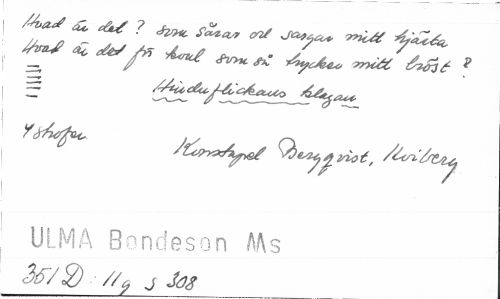 Hvad är det? som sårar och sargar mitt hjärta
Hvad är det för kval som så trycker mitt bröst?
Hinduflickans klagan
4 strofer
Konstapel Bergqvist, Kviberg
ULMA Bondeson Ms
351 D: 11 g s 308